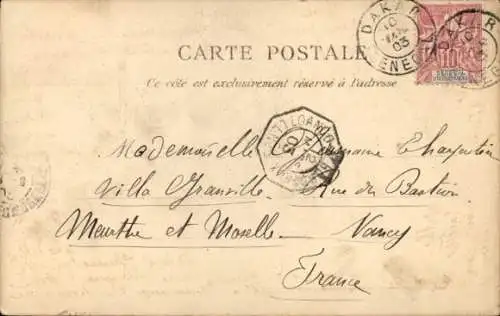 DAKAR
10
03
SENEGAL
CARTE POSTALE
Ce côté est exclusivement réservé à l'adresse
Mademoiselle Charpentier
Villa Granville Rue du Bastion
Meurthe et Moselle Nancy
France